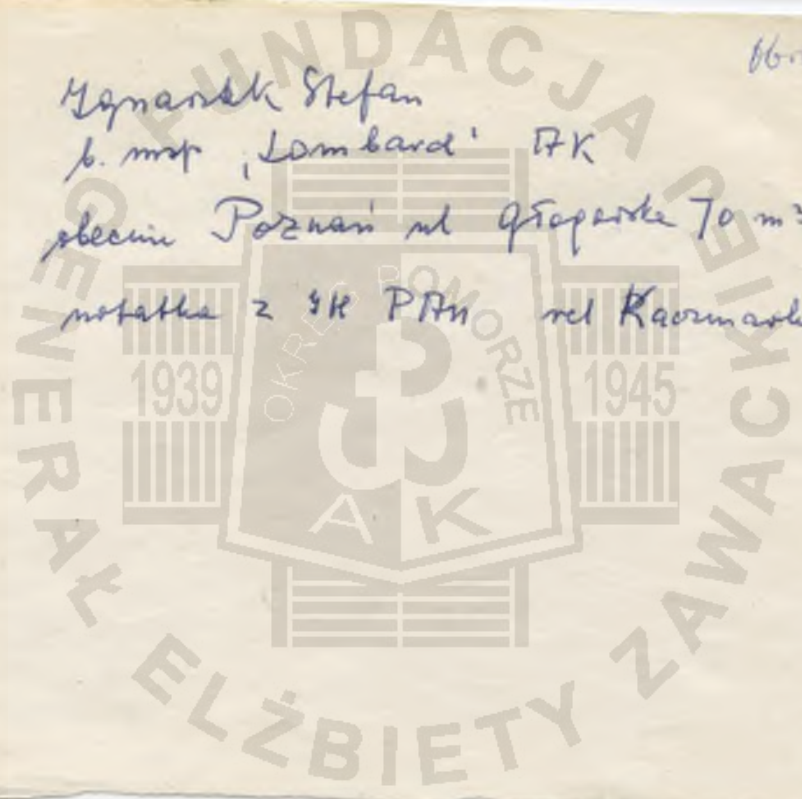 Ignaszak Stefan
b. insp "Lombard" AK
obecnie Poznań ul Głogowska 70 m
notatka z IH PAN rel Kaczmarek
FUNDACJA GENERAŁ ELŻBIETY ZAWACKIEJ
OKRĘG POMORZE
1939 1945
A K